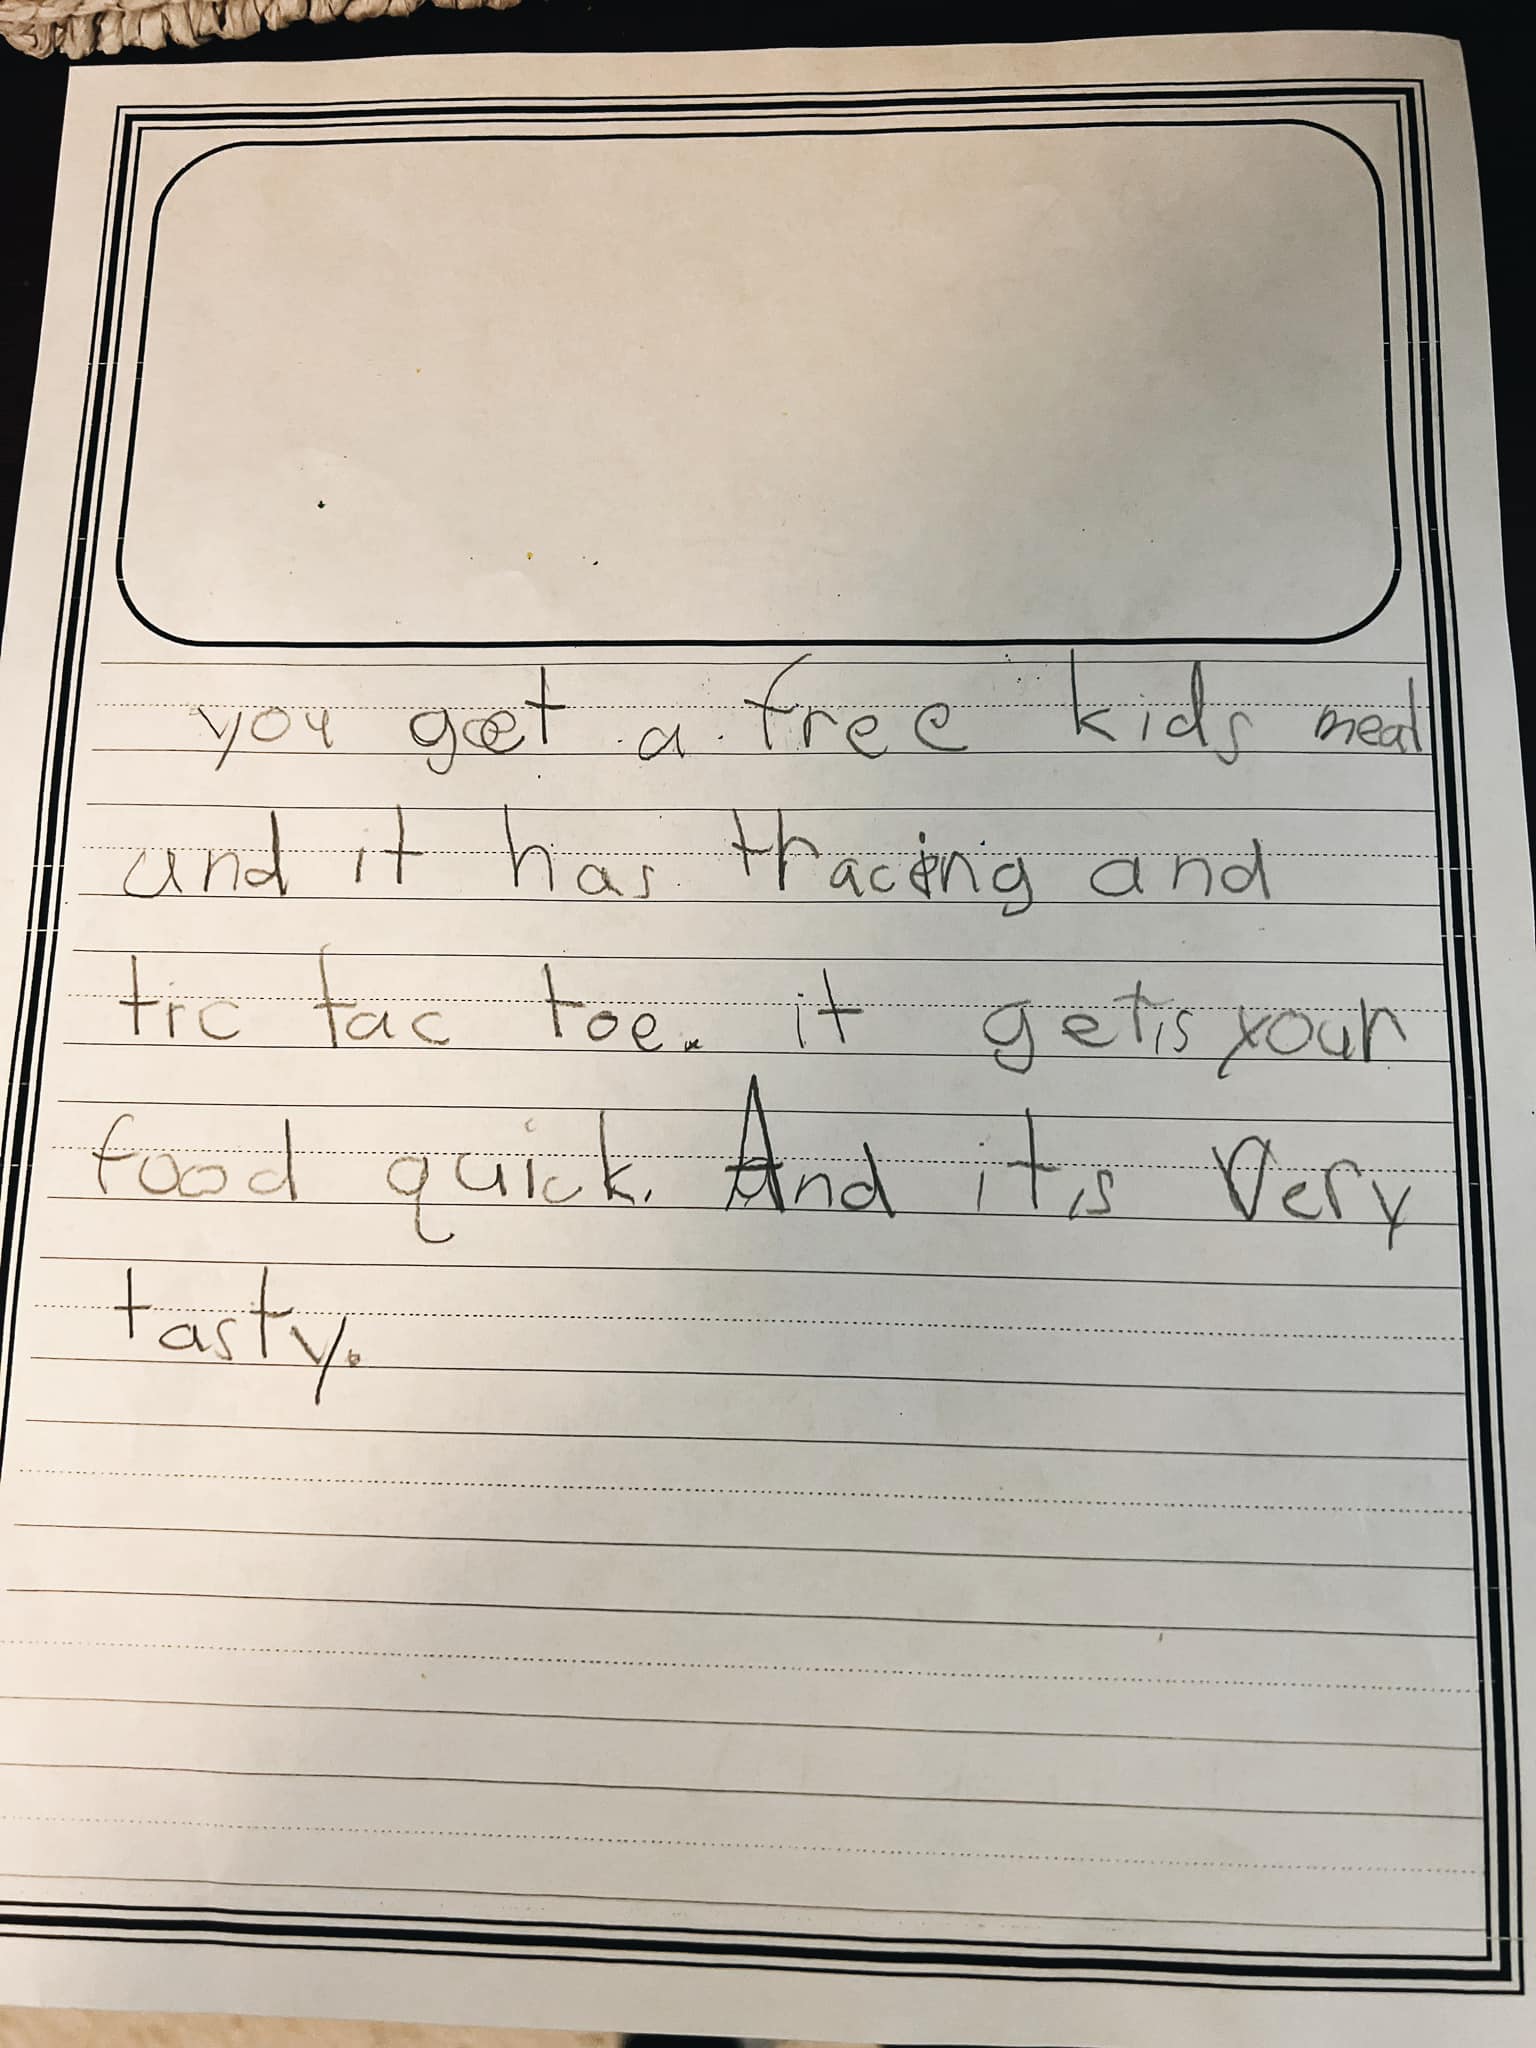 you get a free kids meal
and it has thacing and
tic tac toe. it getis your
food quick. And itis Very
tasty.